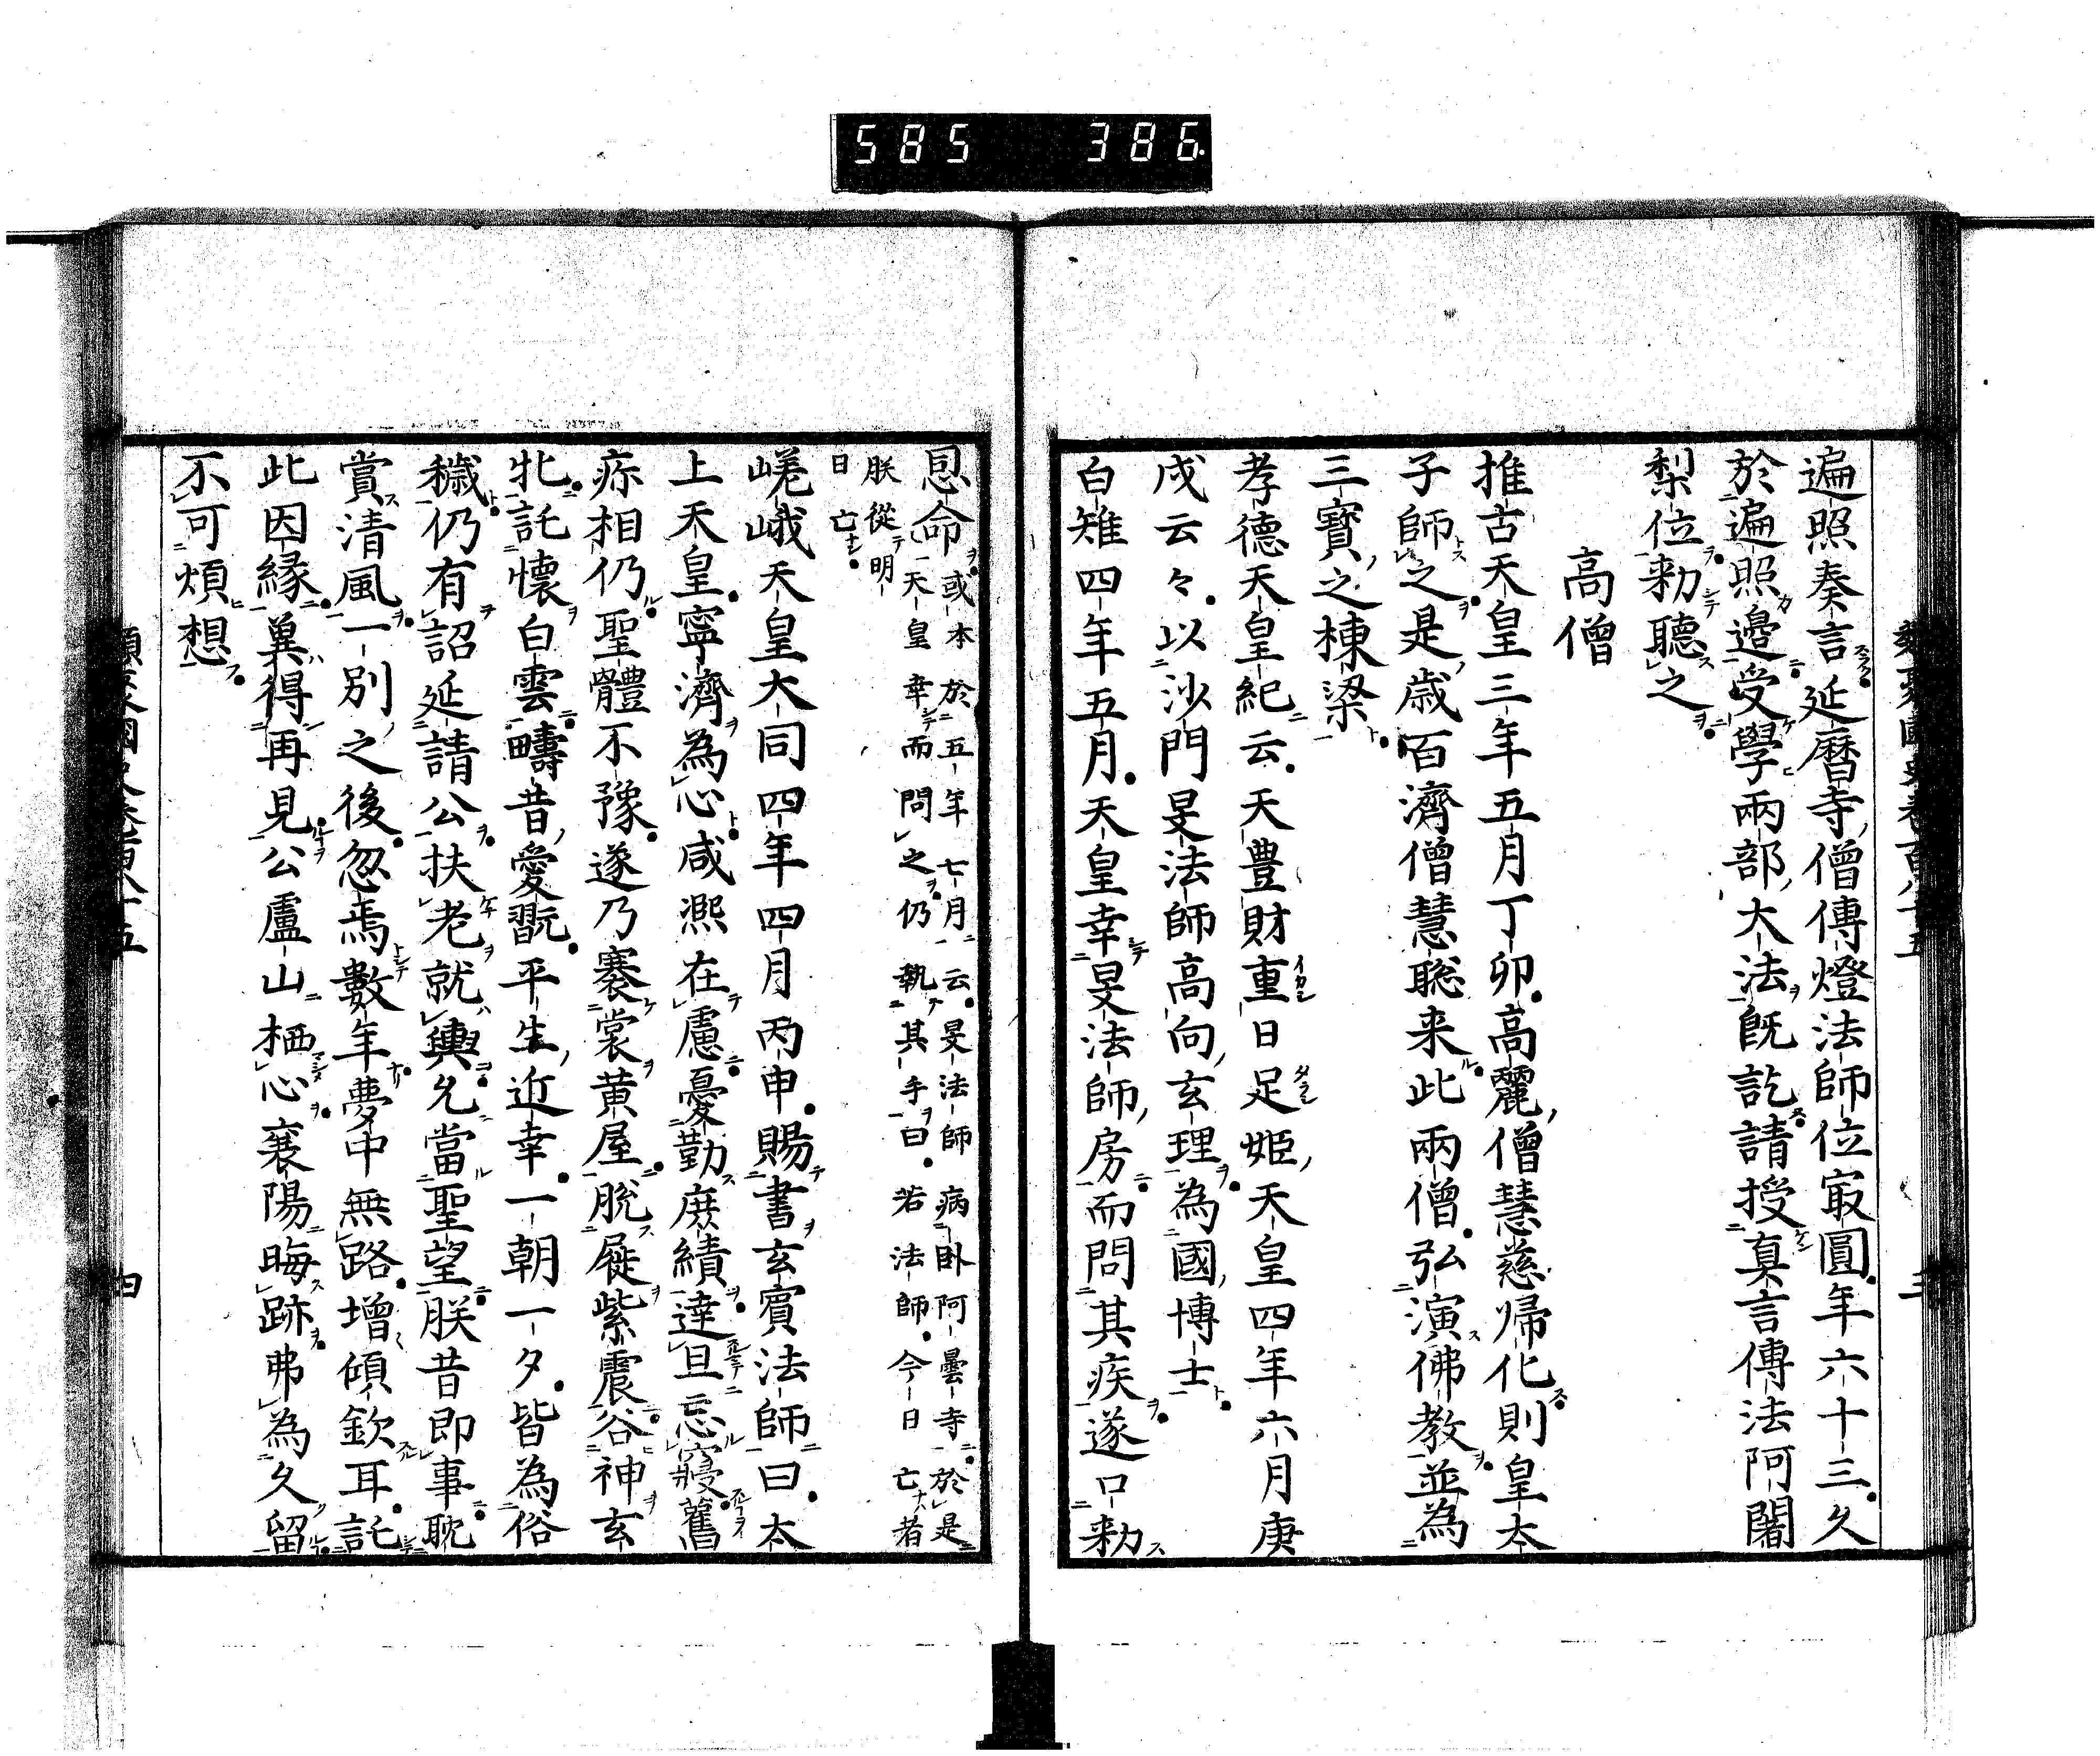 585 386
遍照奏言延曆寺僧傳燈法師位㝡圓年六十三久
於遍照邊受學兩部大法既訖請授真言傳法阿闍
梨位勅聽之
高僧
推古天皇三年五月丁卯高麗僧慧慈帰化則皇太
子師之是歳百濟僧慧聡来此兩僧弘演佛教並為
三寶之棟梁
孝德天皇紀云天豊財重日足姫天皇四年六月庚
戌云々以沙門旻法師高向玄理為國博士
白雉四年五月天皇幸旻法師房而問其疾遂口勅
恩命或本於五年七月云旻法師病臥阿曇寺於是
天皇幸而問之仍執其手曰若法師今日亡者
朕從明
日亡
嵯峨天皇大同四年四月丙申賜書玄賓法師曰太
上天皇寧濟為心咸凞在慮憂勤庶績達旦忘寢舊
疹相仍聖體不豫遂乃褰裳黄屋脫屣紫震谷神玄
牝託懷白雲疇昔愛翫平生近幸一朝一夕皆為俗
穢仍有詔延請公扶老就輿允當聖望朕昔即事耽
賞清風一別之後忽焉數年夢中無路增傾欽耳託
此因緣冀得再見公盧山栖心襄陽晦跡弗為久留
不可煩想
四